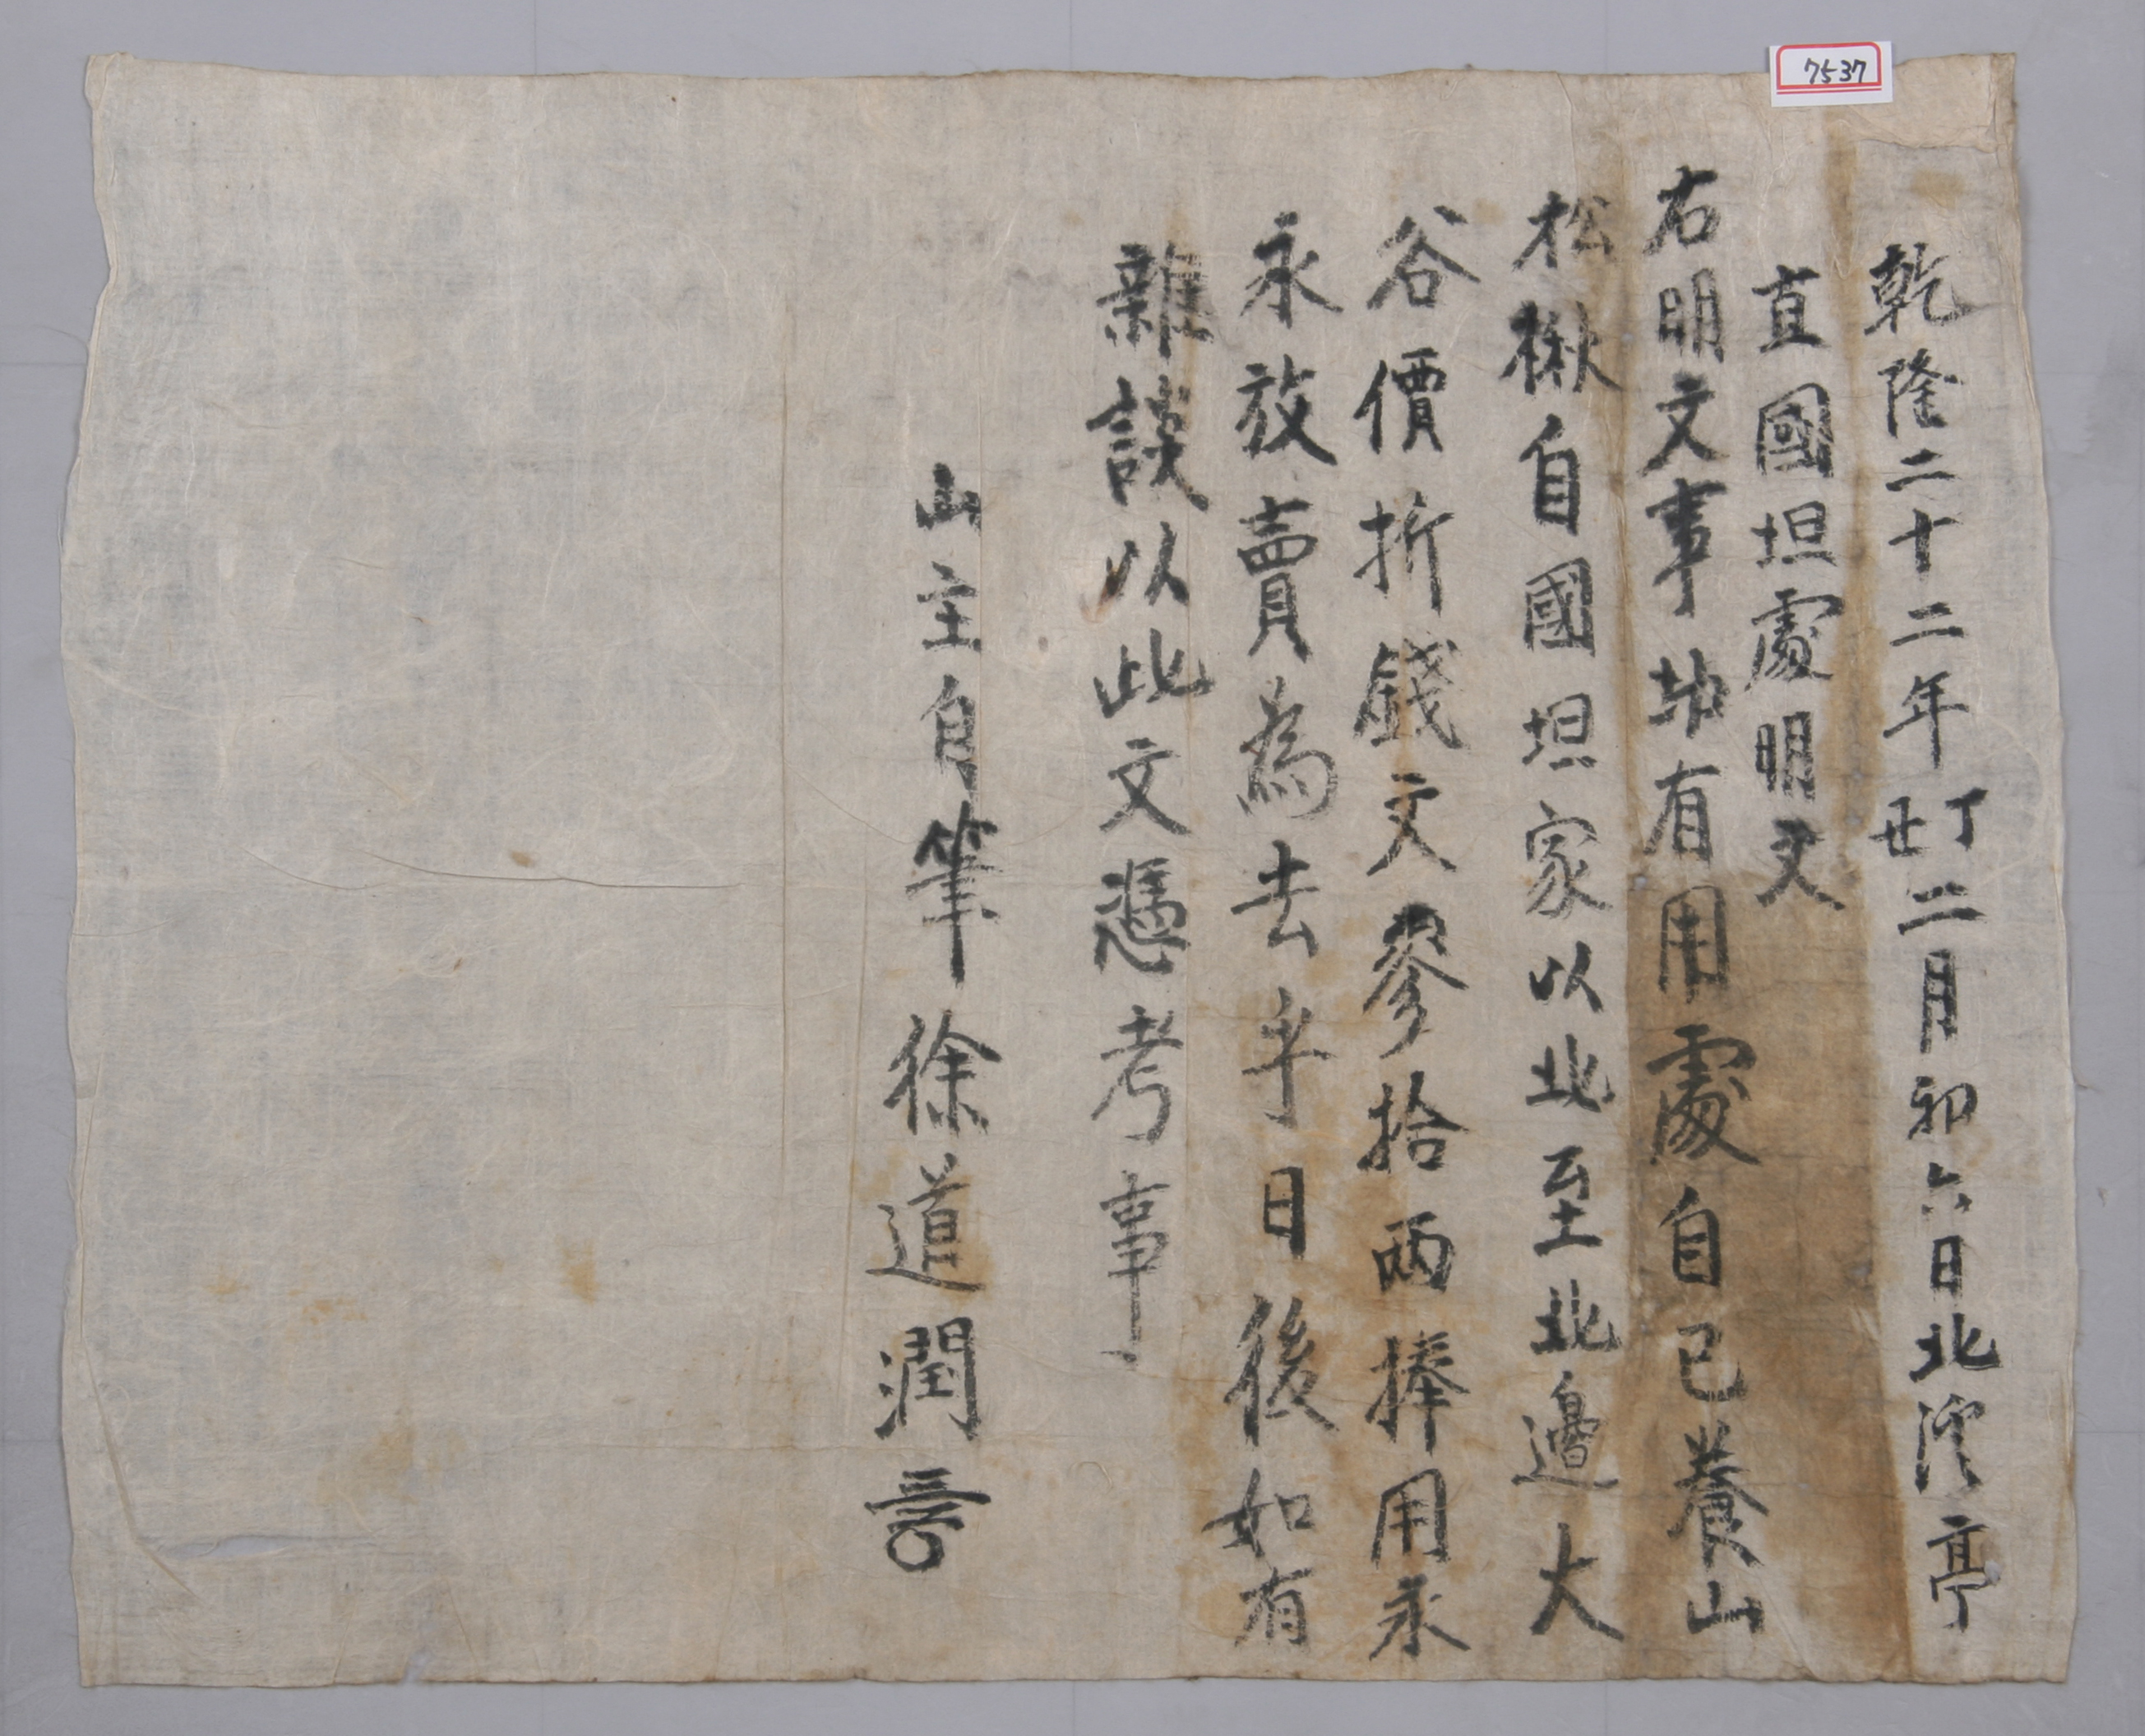 7537
乾隆二十二年丁丑二月初六日北亭
直國坦處明文
右明文事有用處自己養山
松楸自國坦家以北至北邊大
谷價折錢文參拾兩捧用永
永放賣為去乎日後如有
雜談以此文憑考事
山主自筆徐道潤